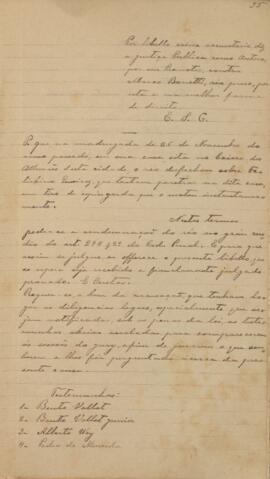 35
Por libello crime accusatorio diz
a Justiça Publica como Autora,
por seu Promotor, contra
Bonetti, réo preso, por
esta e na melhor forma
de direito
E. S. C.
P. que na madrugada de 26 de Novembro do
anno passado, em uma casa sita no bairro do
desta cidade, o réo desfechou sobre
que tentava penetrar na dita casa,
tiro de espingarda que o matou instantanea-
mente.
Nestes termos
pede-se a condemnação do réo no gráu
do art. 294 § 2º do Cod. Penal. E para que
assim se julgue, se offerece o presente libello que
se espera seja recebido e afinal julgado
provado. E Custas.
Requer-se a bem da accusação que tenham lo-
gar as diligencias legaes, especialmente que se-
jam notificadas, sob as penas da lei, as teste-
munhas abaixo arroladas para comparecerem
ás sessões do jury, afim de jurarem o que sou-
berem e lhes fôr perguntado ácerca da pre-
sente causa.
Testemunhas:
1ª Bento Vallet
2ª Bento Vallet Junior
3ª Alberto Wey
4ª Pedro de Almeida